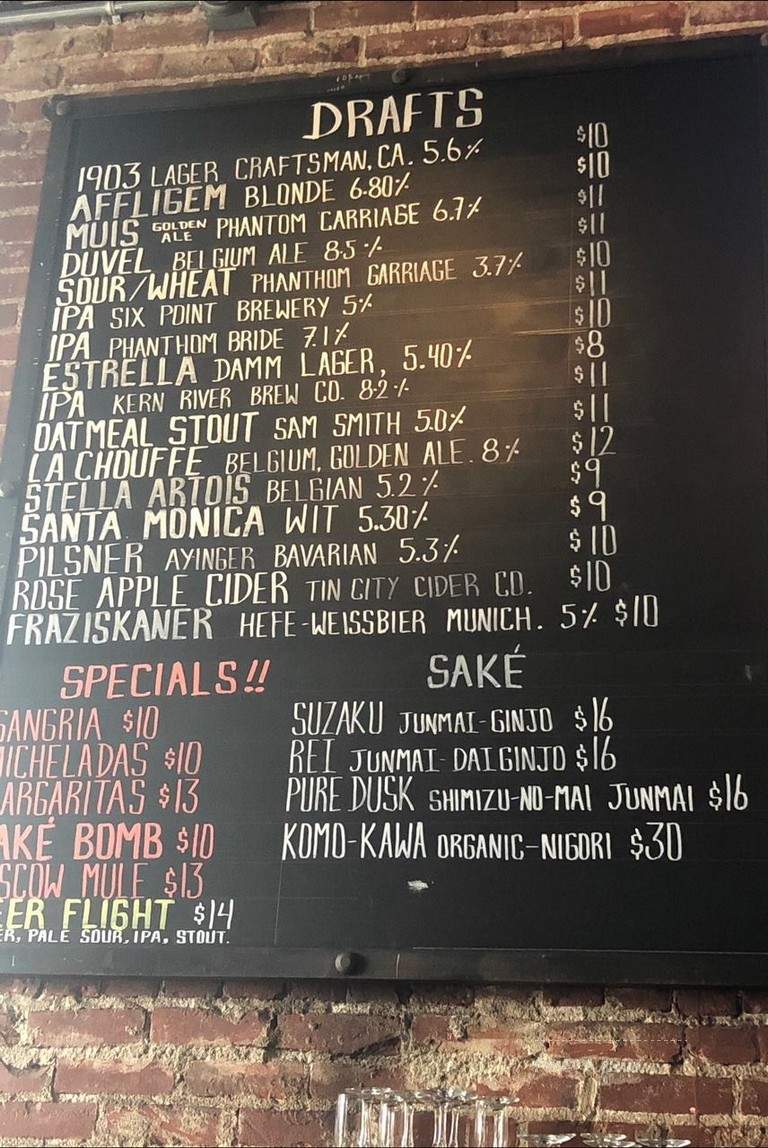 DRAFTS
1903 LAGER CRAFTSMAN, CA. 5.6% $10
AFFLIGEM BLONDE 6.80% $10
MUIS GOLDEN ALE PHANTOM CARRIAGE 6.7% $11
DUVEL BELGIUM ALE 8.5% $11
SOUR/WHEAT PHANTHOM GARRIAGE 3.7% $10
IPA SIX POINT BREWERY 5% $11
IPA PHANTHOM BRIDE 7.1% $10
ESTRELLA DAMM LAGER, 5.40% $8
IPA KERN RIVER BREW CO. 8.2% $11
OATMEAL STOUT SAM SMITH 5.0% $11
LA CHOUFFE BELGIUM, GOLDEN ALE. 8% $12
STELLA ARTOIS BELGIAN 5.2% $9
SANTA MONICA WIT 5.30% $9
PILSNER AYINGER BAVARIAN 5.3% $10
ROSE APPLE CIDER TIN CITY CIDER CO. $10
FRAZISKANER HEFE-WEISSBIER MUNICH. 5% $10
SPECIALS!!
SANGRIA $10
MICHELADAS $10
ARGARITAS $13
AKÉ BOMB $10
SCOW MULE $13
EER FLIGHT $14
ER, PALE SOUR, IPA, STOUT.
SAKÉ
SUZAKU JUNMAI-GINJO $16
REI JUNMAI-DAIGINJO $16
PURE DUSK SHIMIZU-NO-MAI JUNMAI $16
KOMO-KAWA ORGANIC-NIGORI $30